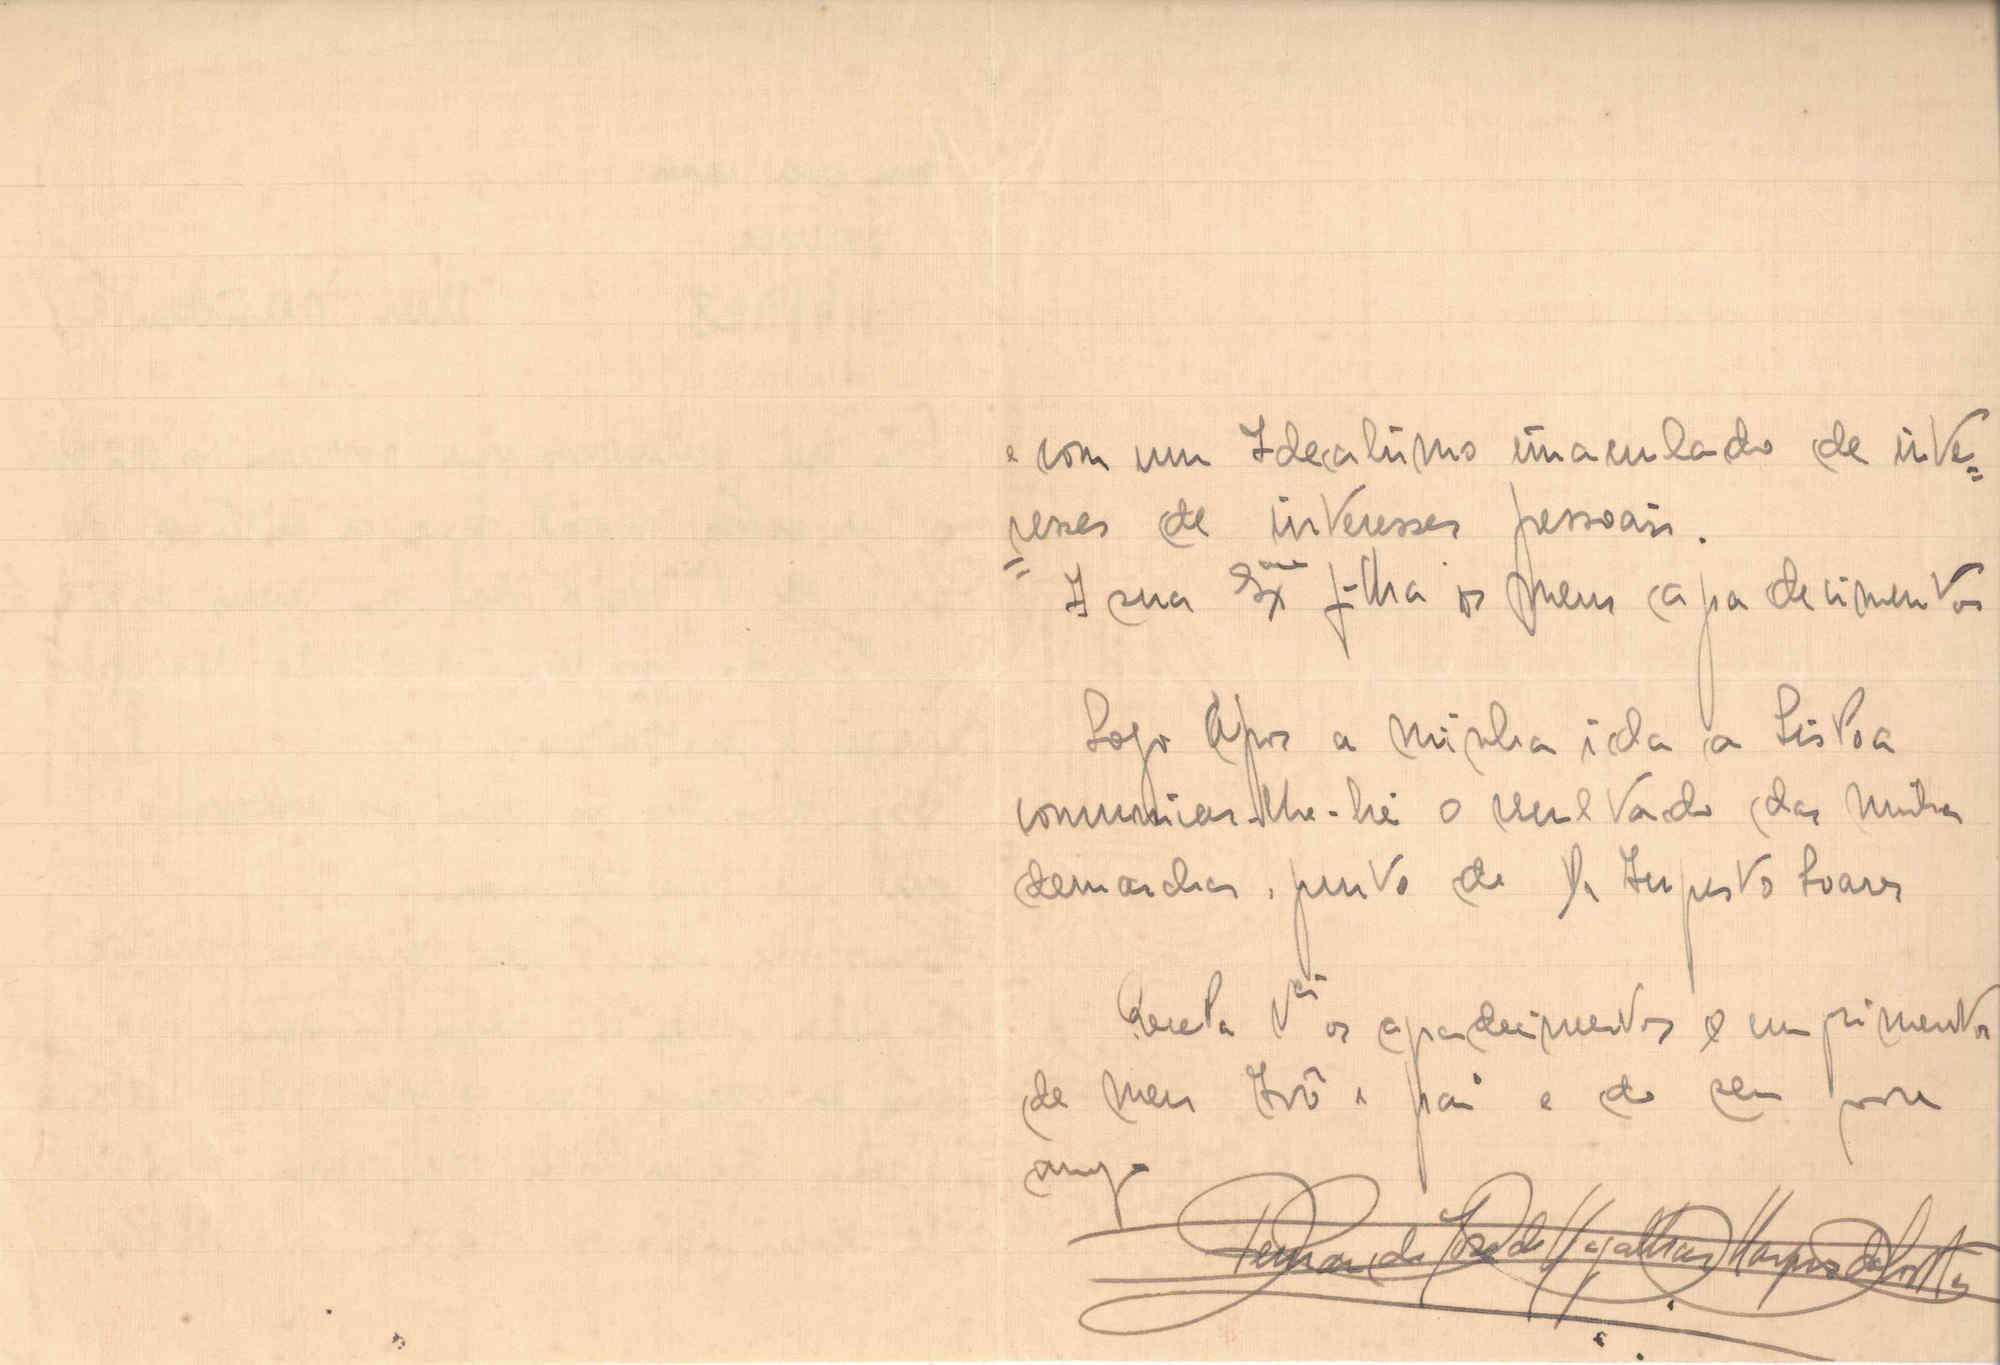 e com um Idealismo imaculado de inte=
resses de interesses pessoais.
A sua Exma filha os meus agradecimentos
Logo após a minha ida a Lisboa
comunicar-lhe-hei o resultado das minhas
demarches, junto do Dr Augusto Soares
Receba V os agradecimentos e cumprimentos
de meu Avô e pai e do seu
amigo
Fernando José de Magalhães Marques da Costa